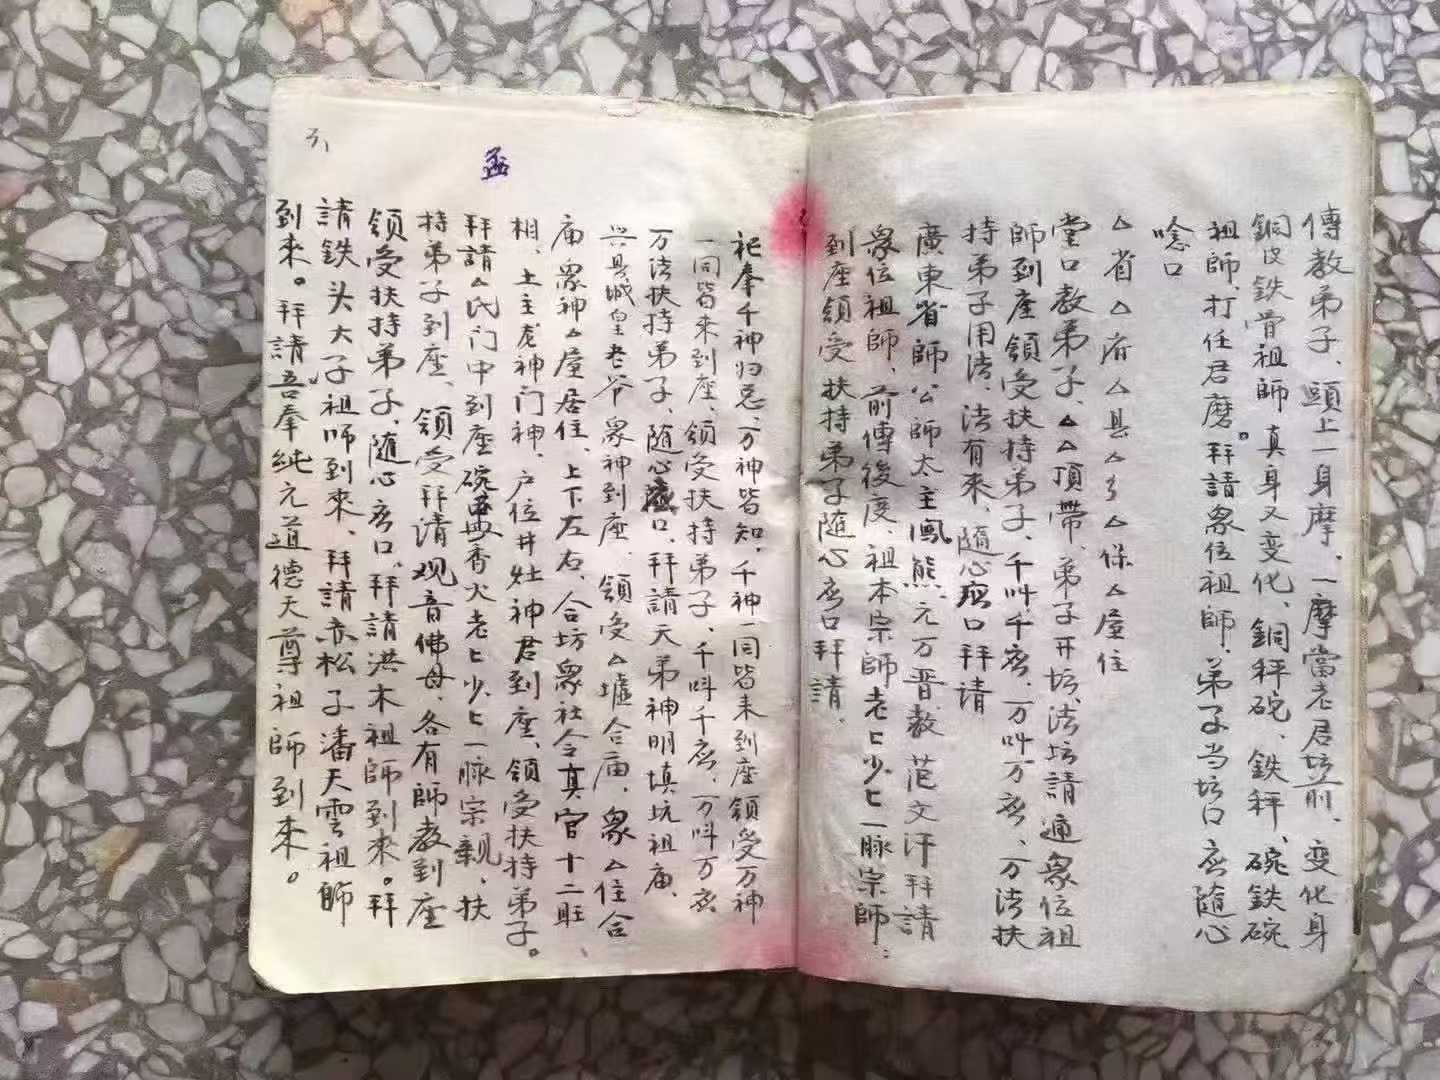 傳教弟子、頭上一身摩、一摩當老君坛前、变化身
銅皮鉄骨祖師真身又变化、銅秤碗、鉄秤、碗鉄碗
祖師、打任君磨。拜請衆位祖師、弟子当坛口应隨心
唸口
△省△府△县△乡△保△屋住
堂口教弟子、△△頂帶、弟子开坛、法坛請通衆位祖
師到座領受扶持弟子、千叫千应、万叫万应、万法扶
持弟子用法、法有来、隨心应口拜请
廣東省師公師太主鳳熊、元万晋教范文汗拜請
衆位祖師、前傳後度、祖本宗師老匕少匕一脉宗師、
到座領受扶持弟子隨心应口拜請、
祀奉千神归总、万神皆知、千神一同皆来到座領受万神
一同皆来到座、領受扶持弟子、千叫千应、万叫万应
万法扶持弟子、隨心应口、拜請天弟神明填坑祖庙、
兴县城皇老爷衆神到座、領受△墟合庙、衆△住合
庙衆神△屋居住、上下左右、合坊衆社令真官十二旺
相、土主龙神门神、户位井灶神君到座、領受扶持弟子。
拜請△氏门中到座碗香火老匕少匕一脉宗親、扶
持弟子到座、領受拜请观音佛母、各有師教到座
領受扶持弟子、隨心应口、拜請洪木祖師到來。拜
請鉄头大子祖师到來、拜請赤松子潘天雲祖師
到來。拜請吾奉純元道德天尊祖師到來。